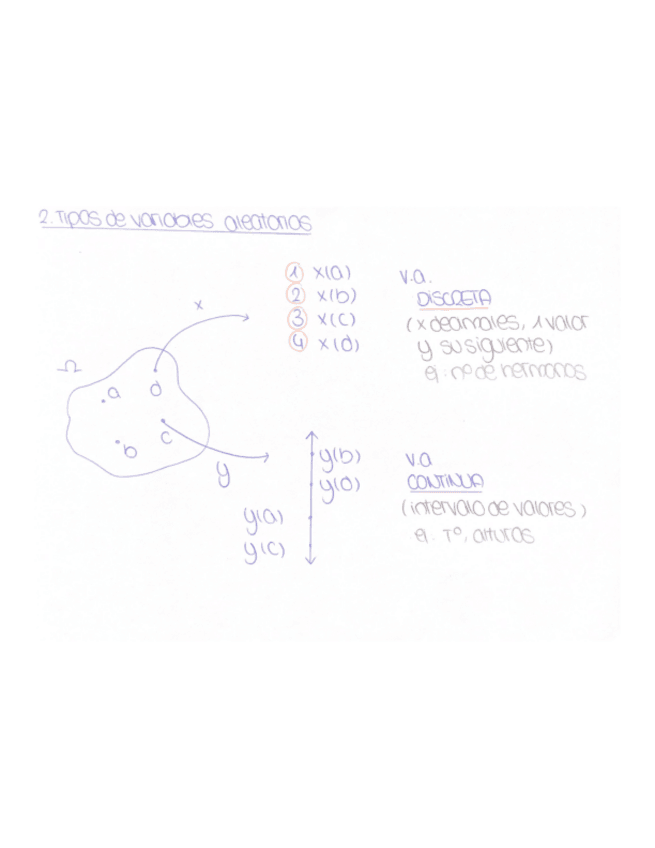 2. Tipos de variables aleatorias
1 x(a)
2 x(b)
3 x(c)
4 x(d)
v.a.
DISCRETA
(x decimales, 1 valor
y su siguiente)
ej: nº de hermanos
x
Ω
a
d
c
b
y
y(b)
y(d)
y(a)
y(c)
v.a
CONTINUA
(intervalo de valores)
ej. Tº, alturas